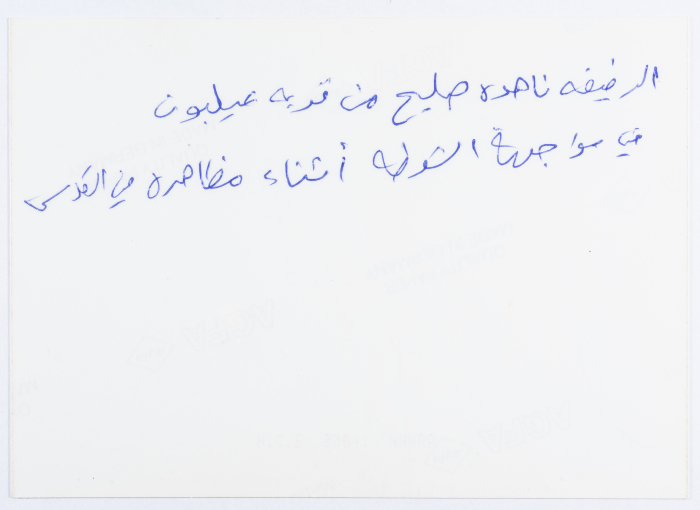 الرفيقه ناهده صليح من قريه عيلبون
في مواجهة الشرطه أثناء مظاهره في القدس